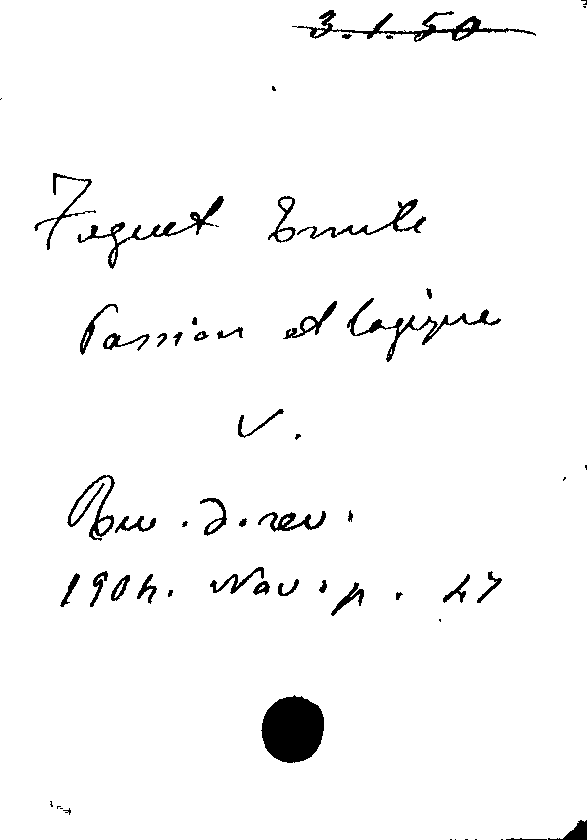 3.1.50
Faguet Emile
Passion et logique
V.
Rev. d. rev.
1904. Nov. p. 47